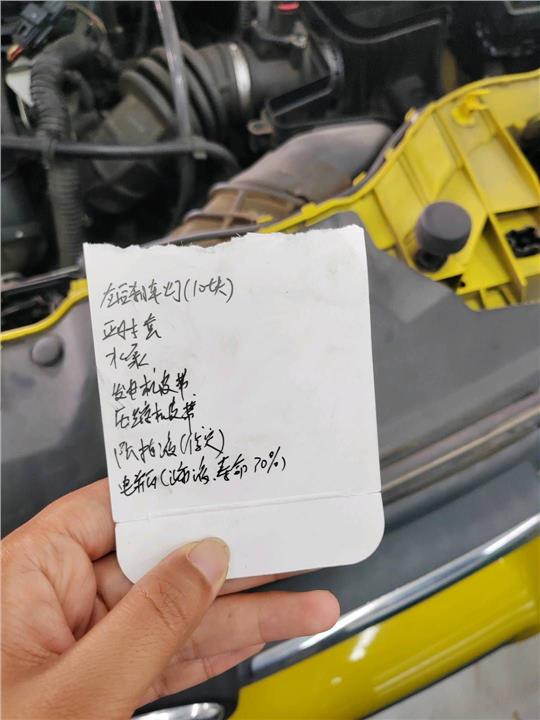 左后刹车灯(10块)
正时套
水泵
发电机皮带
压缩机皮带
电瓶(寿命70%)